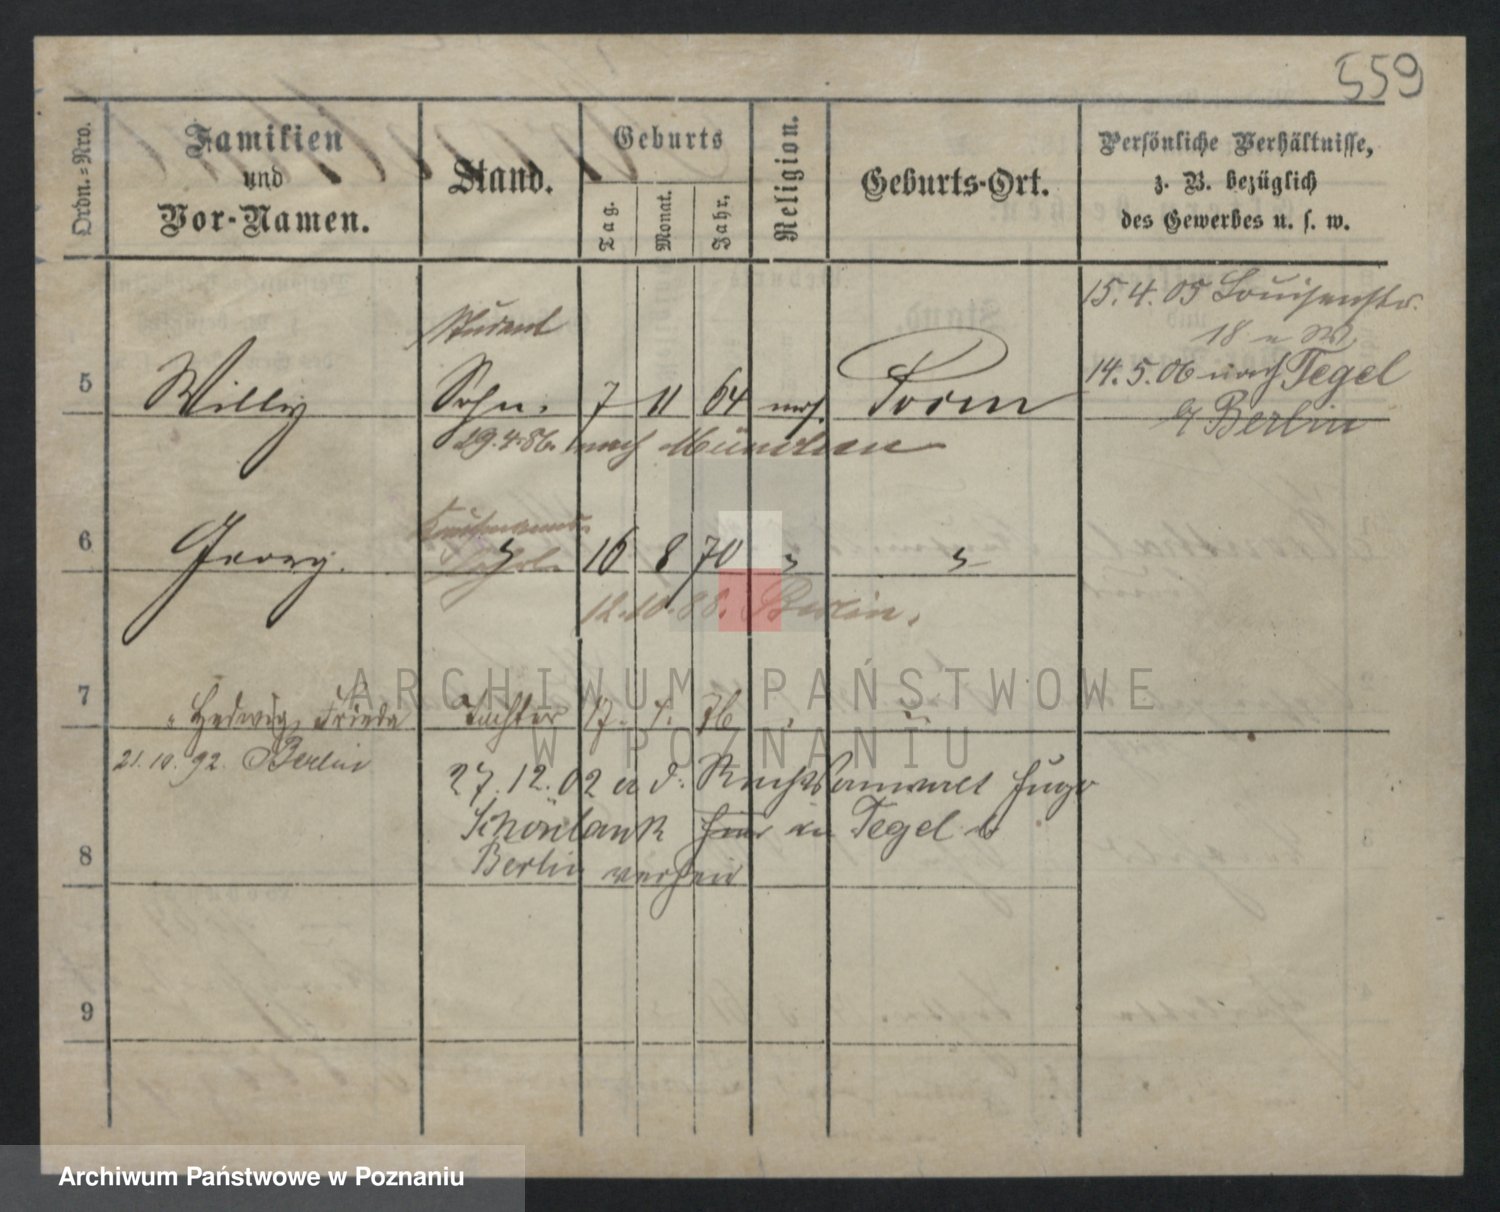 559
Ordn.=Nro.
Familien
und
Vor-Namen.
Stand.
Geburts
Tag.
Monat.
Jahr.
Religion.
Geburts-Ort.
Persönliche Verhältnisse,
z. B. bezüglich
des Gewerbes u. s. w.
15. 4. 05 Louisenstr.
18
14. 5. 06 nach Tegel
b/ Berlin
Student
5 Willy Sohn. 7 11 64 mos. Posen
29.4.86. nach München
Kaufmanns-
6 Georg. " 16 8 70 " "
Lehrl.
12.10.88. Berlin.
7 " Hedwig Frieda Tochter 17. 7. 76 " "
21. 10. 92. Berlin
27. 12. 02 a. d. Rechtsanwalt Hugo
Schönlank hier in Tegel b
8 Berlin verheir
9
ARCHIWUM PAŃSTWOWE
W POZNANIU
Archiwum Państwowe w Poznaniu